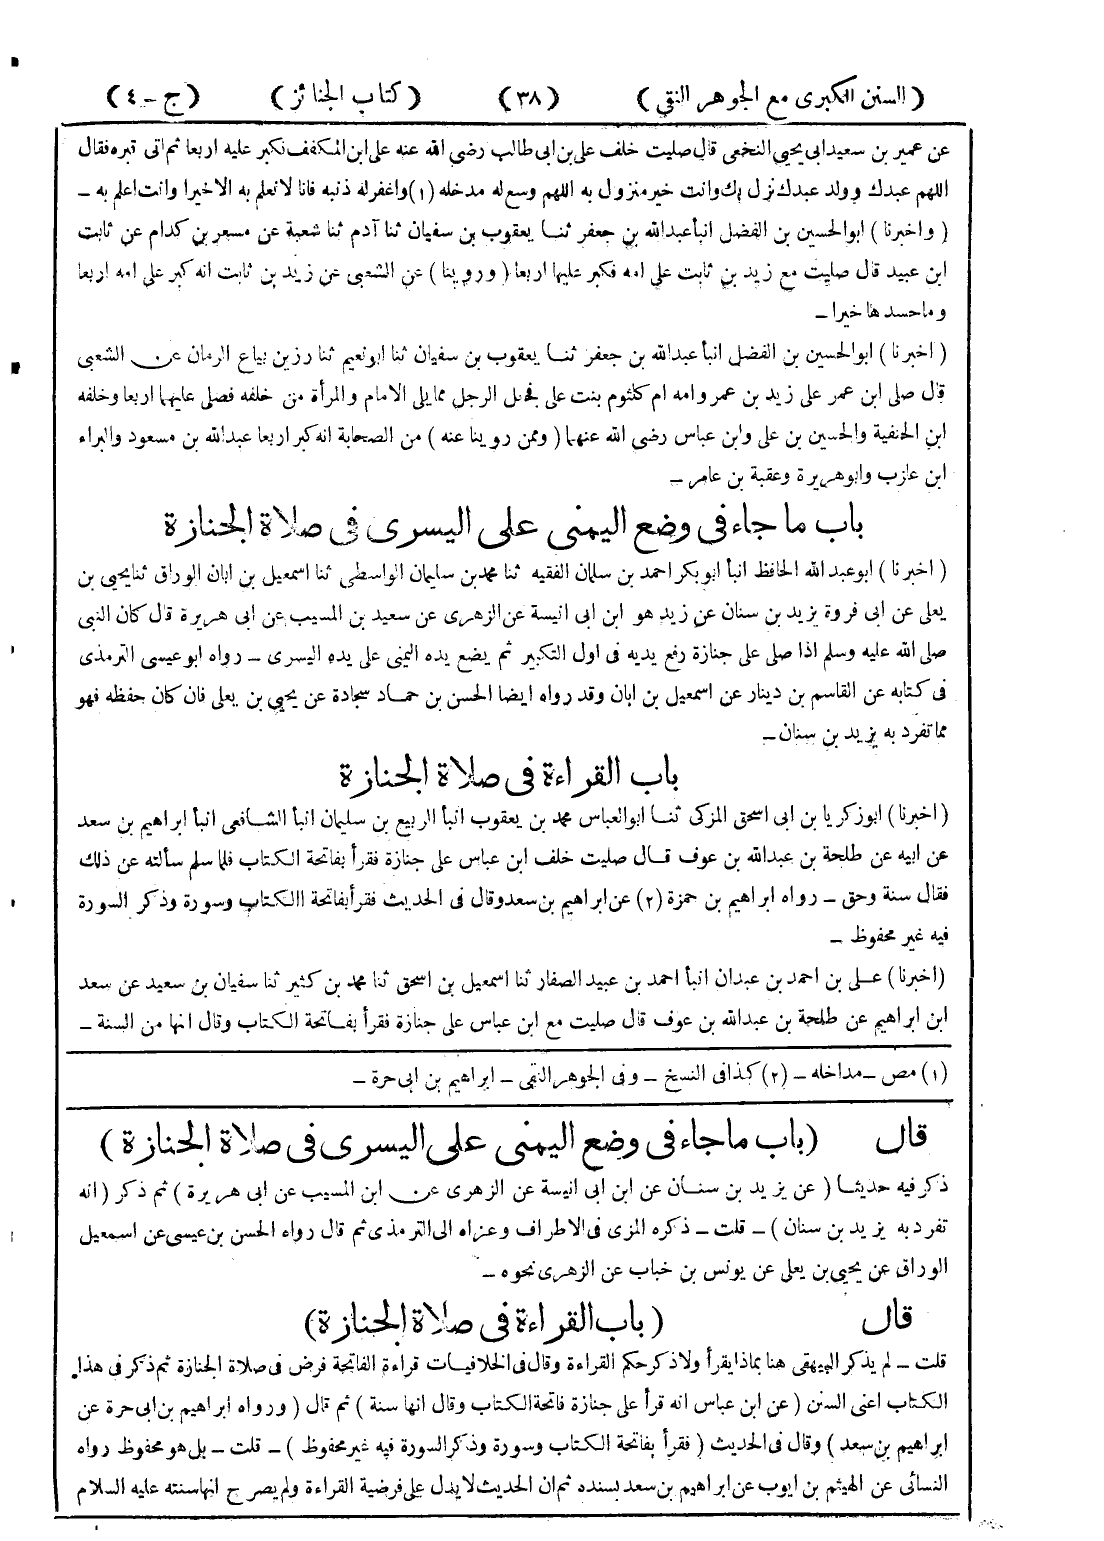 ( السنن الكبرى مع الجوهر النقي ) (٣٨) ( كتاب الجنائز ) ( ج - ٤ )
عن عمير بن سعيد ابى يحيى النخعى قال صليت خلف على بن ابى طالب رضي الله عنه على ابن المكفف فكبر عليه اربعا ثم اتى قبره فقال
اللهم عبدك وولد عبدك نزل بك وانت خير منزول به اللهم وسع له مدخله (١) واغفر له ذنبه فانا لا نعلم به الا خيرا وانت اعلم به -
( واخبرنا ) ابو الحسين بن الفضل انبأ عبد الله بن جعفر ثنا يعقوب بن سفيان ثنا آدم ثنا شعبة عن مسعر بن كدام عن ثابت
ابن عبيد قال صليت مع زيد بن ثابت على امه فكبر عليها اربعا ( وروينا ) عن الشعبى عن زيد بن ثابت انه كبر على امه اربعا
وما حسدها خيرا -
( اخبرنا ) ابو الحسين بن الفضل انبأ عبد الله بن جعفر ثنا يعقوب بن سفيان ثنا ابو نعيم ثنا رزين بياع الرمان عن الشعبى
قال صلى ابن عمر على زيد بن عمر وامه ام كلثوم بنت على فجعل الرجل مما يلى الامام والمرأة من خلفه فصلى عليهما اربعا وخلفه
ابن الحنفية والحسين بن على وابن عباس رضي الله عنهما ( وممن روينا عنه ) من الصحابة انه كبر اربعا عبد الله بن مسعود والبراء
ابن عازب وابو هريرة وعقبة بن عامر -
باب ما جاء فى وضع اليمنى على اليسرى فى صلاة الجنازة
( اخبرنا ) ابو عبد الله الحافظ انبأ ابو بكر احمد بن سلمان الفقيه ثنا محمد بن سليمان الواسطى ثنا اسمعيل بن ابان الوراق ثنا يحيى بن
يعلى عن ابى فروة يزيد بن سنان عن زيد هو ابن ابى انيسة عن الزهرى عن سعيد بن المسيب عن ابى هريرة قال كان النبى
صلى الله عليه وسلم اذا صلى على جنازة رفع يديه فى اول التكبير ثم يضع يده اليمنى على يده اليسرى - رواه ابو عيسى الترمذى
فى كتابه عن القاسم بن دينار عن اسمعيل بن ابان وقد رواه ايضا الحسن بن حماد سجادة عن يحيى بن يعلى فان كان حفظه فهو
مما تفرد به يزيد بن سنان -
باب القراءة فى صلاة الجنازة
( اخبرنا ) ابو زكريا بن ابى اسحق المزكى ثنا ابو العباس محمد بن يعقوب انبأ الربيع بن سليمان انبأ الشافعى انبأ ابراهيم بن سعد
عن ابيه عن طلحة بن عبد الله بن عوف قال صليت خلف ابن عباس على جنازة فقرأ بفاتحة الكتاب فلما سلم سألته عن ذلك
فقال سنة وحق - رواه ابراهيم بن حمزة (٢) عن ابراهيم بن سعد وقال فى الحديث فقرأ بفاتحة االكتاب وسورة وذكر السورة
فيه غير محفوظ -
( اخبرنا ) على بن احمد بن عبدان انبأ احمد بن عبيد الصفار ثنا اسمعيل بن اسحق ثنا محمد بن كثير ثنا سفيان بن سعيد عن سعد
ابن ابراهيم عن طلحة بن عبد الله بن عوف قال صليت مع ابن عباس على جنازة فقرأ بفاتحة الكتاب وقال انها من السنة -
(١) مص - مداخله - (٢) كذا فى النسخ - وفى الجوهر النقى - ابراهيم بن ابى حرة -
قال ( باب ما جاء فى وضع اليمنى على اليسرى فى صلاة الجنازة )
ذكر فيه حديثا ( عن يزيد بن سنان عن ابن ابى انيسة عن الزهرى عن ابن المسيب عن ابى هريرة ) ثم ذكر ( انه
تفرد به يزيد بن سنان ) - قلت - ذكره المزى فى الاطراف وعزاه الى الترمذى ثم قال رواه الحسن بن عيسى عن اسمعيل
الوراق عن يحيى بن يعلى عن يونس بن خباب عن الزهرى نحوه -
قال ( باب القراءة فى صلاة الجنازة )
قلت - لم يذكر البيهقى هنا بماذا يقرأ ولا ذكر حكم القراءة وقال فى الخلافيات قراءة الفاتحة فرض فى صلاة الجنازة ثم ذكر فى هذا
الكتاب اعنى السنن ( عن ابن عباس انه قرأ على جنازة فاتحة الكتاب وقال انها سنة ) ثم قال ( ورواه ابراهيم بن ابى حرة عن
ابراهيم بن سعد ) وقال فى الحديث ( فقرأ بفاتحة الكتاب وسورة وذكر السورة فيه غير محفوظ ) - قلت - بل هو محفوظ رواه
النسائى عن الهيثم بن ايوب عن ابراهيم بن سعد بسنده ثم ان الحديث لا يدل على فرضية القراءة ولم يصرح انها سنته عليه السلام